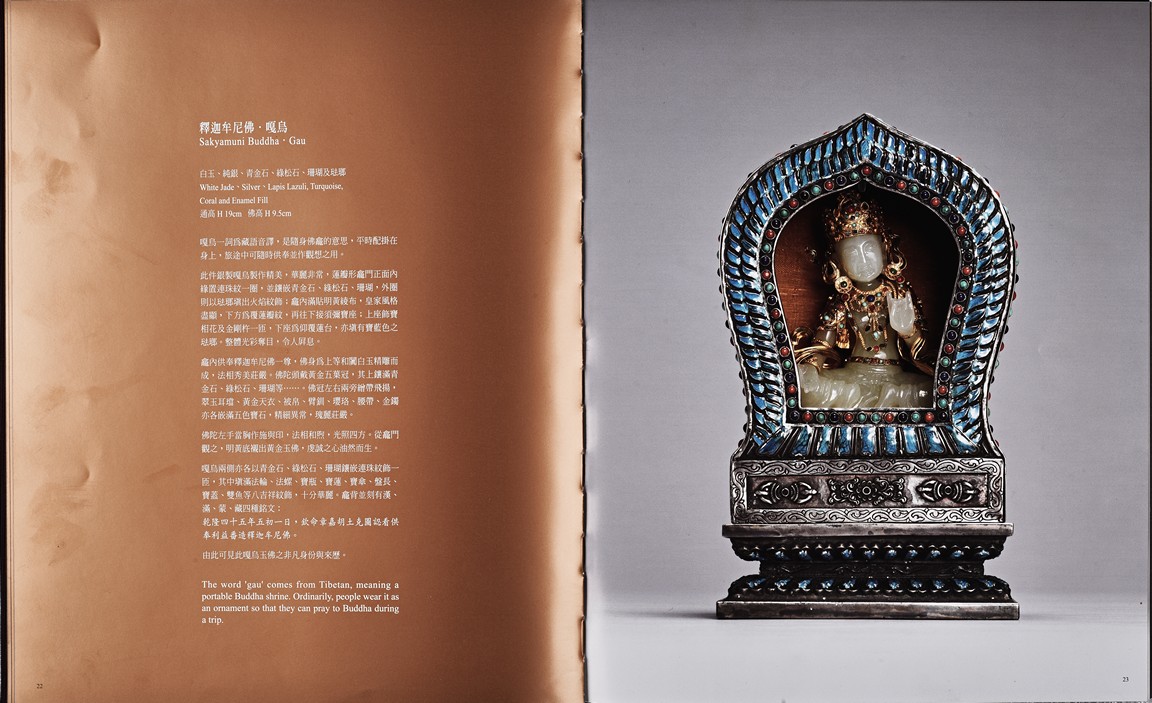 釋迦牟尼佛・嘎烏
Sakyamuni Buddha・Gau
白玉、純銀、青金石、綠松石、珊瑚及琺瑯
White Jade、Silver、Lapis Lazuli, Turquoise,
Coral and Enamel Fill
通高 H 19cm 佛高 H 9.5cm
嘎烏一詞爲藏語音譯，是隨身佛龕的意思，平時配掛在
身上，旅途中可隨時供奉並作觀想之用。
此件銀製嘎烏製作精美，華麗非常，蓮瓣形龕門正面內
緣置連珠紋一圈，並鑲嵌青金石、綠松石、珊瑚，外圈
則以琺瑯填出火焰紋飾；龕內滿貼明黃綾布，皇家風格
盡顯，下方爲覆蓮瓣紋，再往下接須彌寶座；上座飾寶
相花及金剛杵一匝，下座爲仰覆蓮台，亦填有寶藍色之
琺瑯。整體光彩奪目，令人屏息。
龕內供奉釋迦牟尼佛一尊，佛身爲上等和闐白玉精雕而
成，法相秀美莊嚴。佛陀頭戴黃金五葉冠，其上鑲滿青
金石、綠松石、珊瑚等……。佛冠左右兩旁繒帶飛揚，
翠玉耳墻、黃金天衣、被帛、臂釧、瓔珞、腰帶、金鐲
亦各嵌滿五色寶石，精細異常，瑰麗莊嚴。
佛陀左手當胸作施與印，法相和煦，光照四方。從龕門
觀之，明黃底襯出黃金玉佛，虔誠之心油然而生。
嘎烏兩側亦各以青金石、綠松石、珊瑚鑲嵌連珠紋飾一
匝，其中填滿法輪、法螺、寶瓶、寶蓮、寶傘、盤長、
寶蓋、雙魚等八吉祥紋飾，十分華麗。龕背並刻有漢、
滿、蒙、藏四種銘文：
乾隆四十五年五初一日，欽命章嘉胡土克圖認看供
奉利益番造釋迦牟尼佛。
由此可見此嘎烏玉佛之非凡身份與來歷。
The word 'gau' comes from Tibetan, meaning a
portable Buddha shrine. Ordinarily, people wear it as
an ornament so that they can pray to Buddha during
a trip.
22
23